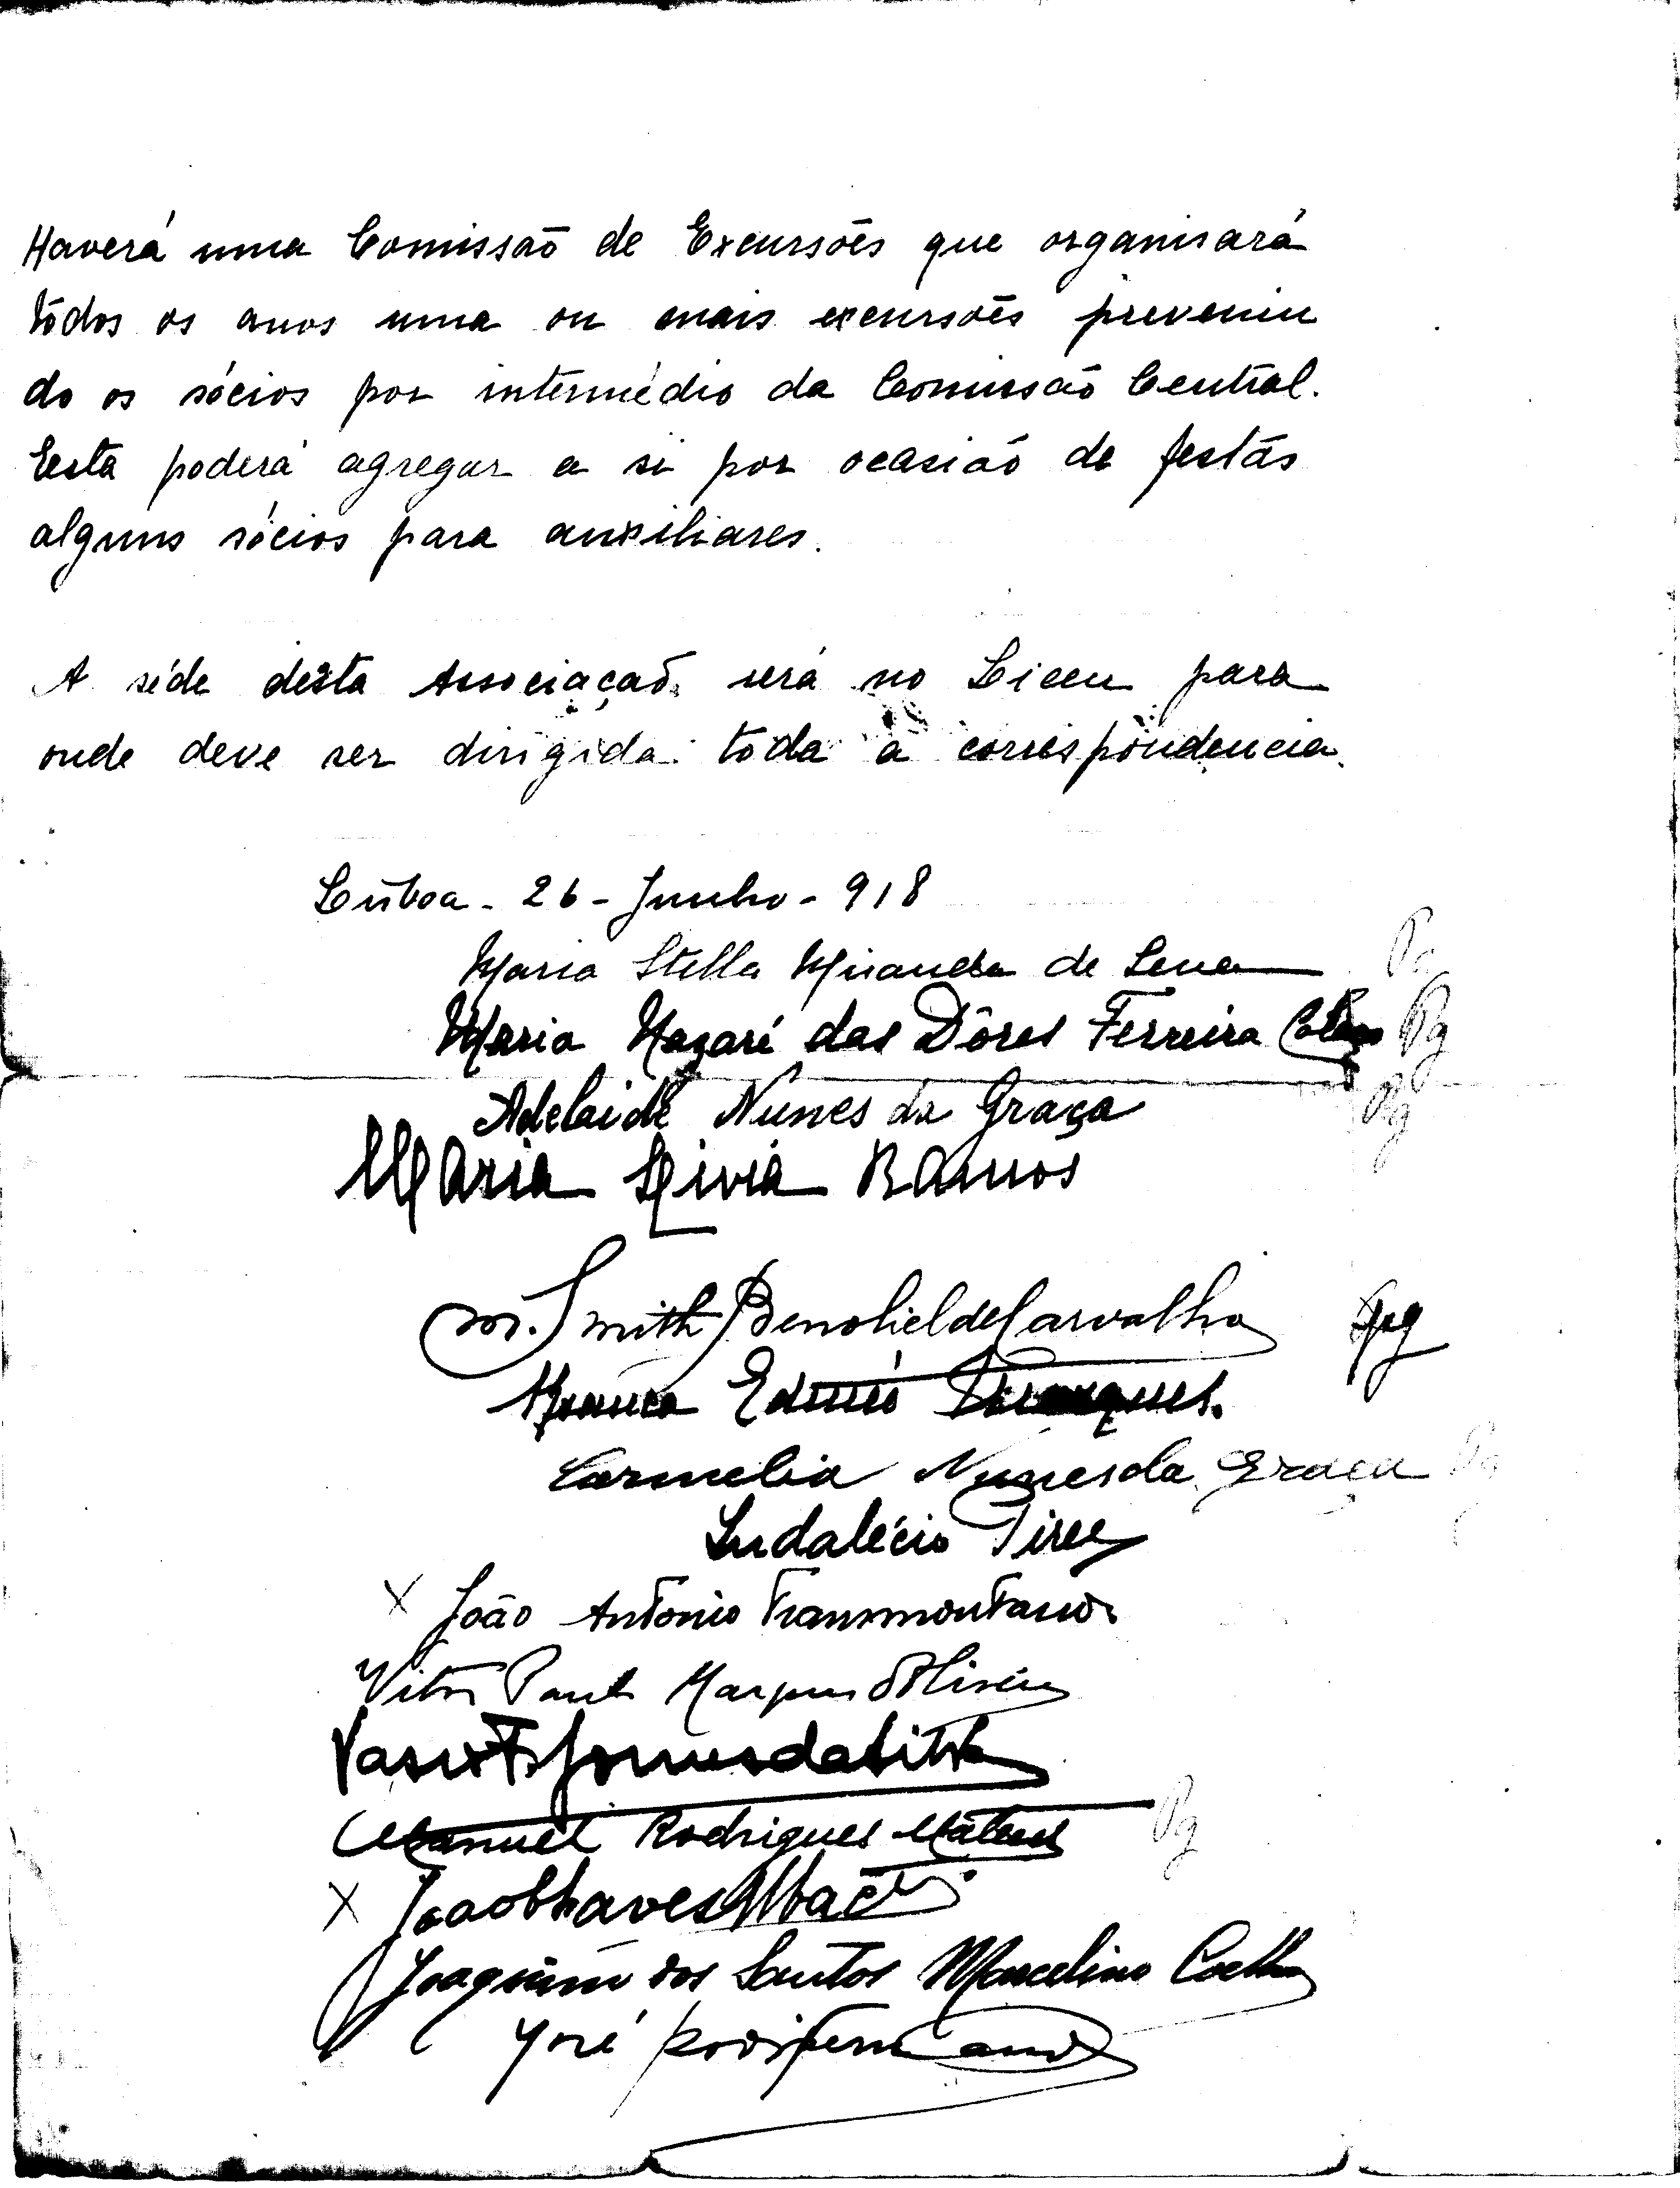 Haverá uma Comissão de Excursões que organisará
todos os anos uma ou mais excursões prevenin
do os sócios por intermédio da Comissão Central.
Esta poderá agregar a si por ocasião de festas
alguns sócios para auxiliares.
A séde desta Associação será no Liceu para
onde deve ser dirigida toda a correspondencia.
Lisboa - 26 - Junho - 918
Maria Stella Miranda de Sena
Maria Nazaré das Dôres Ferreira Pg
Adelaide Nunes da Graça Pg
Maria Livia Ramos
M. Smith Benoliel de Carvalho Pg
Branca Edmée Marques.
Carmelia Nunes da Graça Pg
Indalécio Pires
X João Antonio Transmontano
Vitor Paulo Marques d'Oliveira
Vasco Gomes da Silva
Manuel Rodrigues Mateus Pg
X João Chaves
Joaquim dos Santos Marcelino Coelho
José